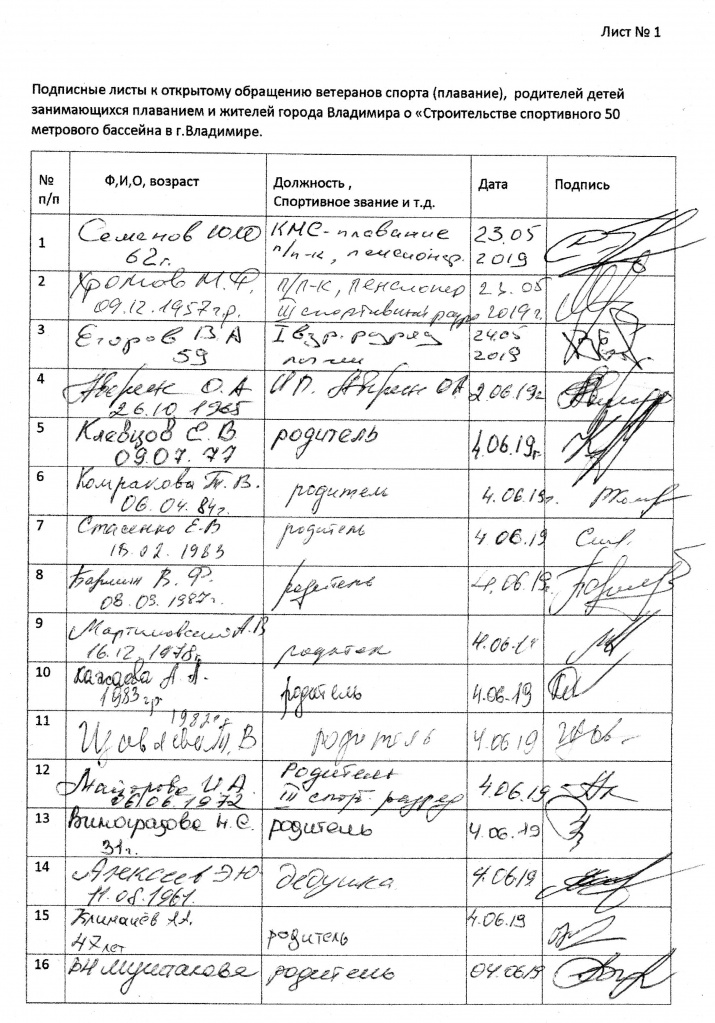 Лист № 1
Подписные листы к открытому обращению ветеранов спорта (плавание), родителей детей
занимающихся плаванием и жителей города Владимира о «Строительстве спортивного 50
метрового бассейна в г.Владимире.
№ п/п Ф,И,О, возраст Должность , Спортивное звание и т.д. Дата Подпись
1 Семенов КМС - плавание 23.05
62г. п/п-к, пенсионер. 2019
2 Хромов М.Ф. п/п-к, пенсионер 23.05
09.12.1957г.р. III спортивный 2019г.
3 Егоров В.А I взр. разряд 24.05
59 2019
4 О.А ИП. О.А 2.06.19г
26.10 1965
5 Клевцов Е.В родитель 4.06.19г.
09.07.77
6 Комракова Т.В. родитель 4.06.19г.
06.04.84г.
7 Стасенко Е.В родитель 4 06.19
18.02.1983
8 Бармин В.Ф. родитель 4.06.19г
08.03.1987г.
9 Мартиновский А.В родител 4.06.19
16.12.1978г.
10 А А. родитель 4.06.19
1983 гр
11 1982гр
Т,В родитель 4.06.19
12 Майорова И.А. Родитель 4.06.19
06.06.1972 III спорт. разряд
13 Виноградова Н.С. родитель 4.06.19
31г.
14 Алексеев Э.Ю дедушка 4.06.19
11.08.1961.
15 родитель 4.06.19
47лет
16 родитель 04.0619